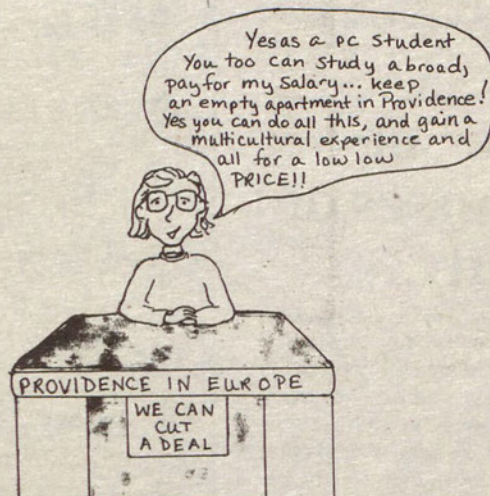 Yes as a PC Student
You too can study abroad,
pay for my salary... keep
an empty apartment in Providence!
Yes you can do all this, and gain a
multicultural experience and
all for a low low
PRICE!!
PROVIDENCE IN EUROPE
WE CAN
CUT
A DEAL